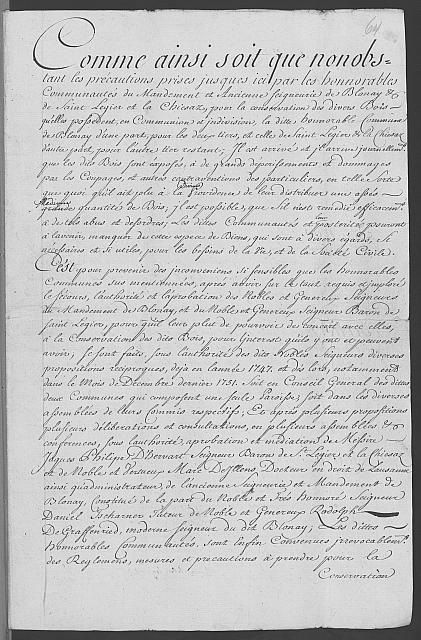 64
Comme ainsi soit que nonobs=
tant les précautions prises jusques ici par les honnorables
Communautés du Mandement et Ancienne Seigneurie de Blonay &
de Saint Legier et la Chiesaz, pour la conservation des divers Bois
qu'elles possédent, en Communion et indivision, la ditte honorable Commune
de Blonay d'une part, pour les deux tiers, et celle de Saint Legier & la Chiesaz
d'autre part, pour l'autre tier restant; Il est arrivé et il arrive journellement
que les dits Bois sont exposés, à de grands dépérissements et dommages
par les Coupages, et autres contraventions des particuliers, en telle sorte
que quoi qu'il ait plu à la Divine Providence de leur distribuer une assés
Mediocre
grande quantité de Bois, il est possible, que s'il n'est remédié efficacemt.
à de tels abus et desordres, Les dittes Communautés et leur posterité pourront
à l'avenir, manquer de cette espece de Biens, qui sont à divers égards, si
nécessaires et si utiles, pour les besoins de la Vie, et de la Societé Civile.
C'est pour prevenir des inconveniens si sensibles que les honnorables
Communes sus mentionnées, après avoir sur ce tant requis et imploré
le secours, l'authorité et l'aprobation des Nobles et Genereux Seigneurs
du Mandement de Blonay, et du Noble et Genereux Seigneur Baron de
Saint Legier, pour qu'il leur plut de pourvoir de concert avec elles,
à la Conservation des dits Bois, pour l'interest qu'ils y ont et peuvent
avoir; Se sont faits, sous l'authorité des dits Nobles Seigneurs diverses
propositions réciproques, déja en l'année 1747. et dès lors, notamment
dans le Mois de Decembre dernier 1751. Soit en Conseil General des dittes
deux Communes qui composent une seule Paroisse, soit dans les diverses
assemblées de leurs Commis respectifs; Et après plusieurs propositions
plusieurs déliberations et consultations, en plusieurs assemblées &
conferences, sous l'authorité, aprobation et médiation de Messire
Jaques Philipe D'Hervart Seigneur Baron de St. Legier et la Chiesaz
et de Nobles et Vertueux Marc Deffens Docteur en droit de Lausanne
ainsi qu'administrateur, de l'ancienne Seigneurie et Mandement de
Blonay, Constitué de la part du Noble et Très Honnoré Seigneur
Daniel Tscharner Tuteur de Noble et Genereux Rodolph
De Graffenried, moderne Seigneur du dit Blonay; Les dittes
honnorables Communautés, sont enfin Convenues irrevocablemt.
des Reglemens, mesures et precautions à prendre pour la
Conservation